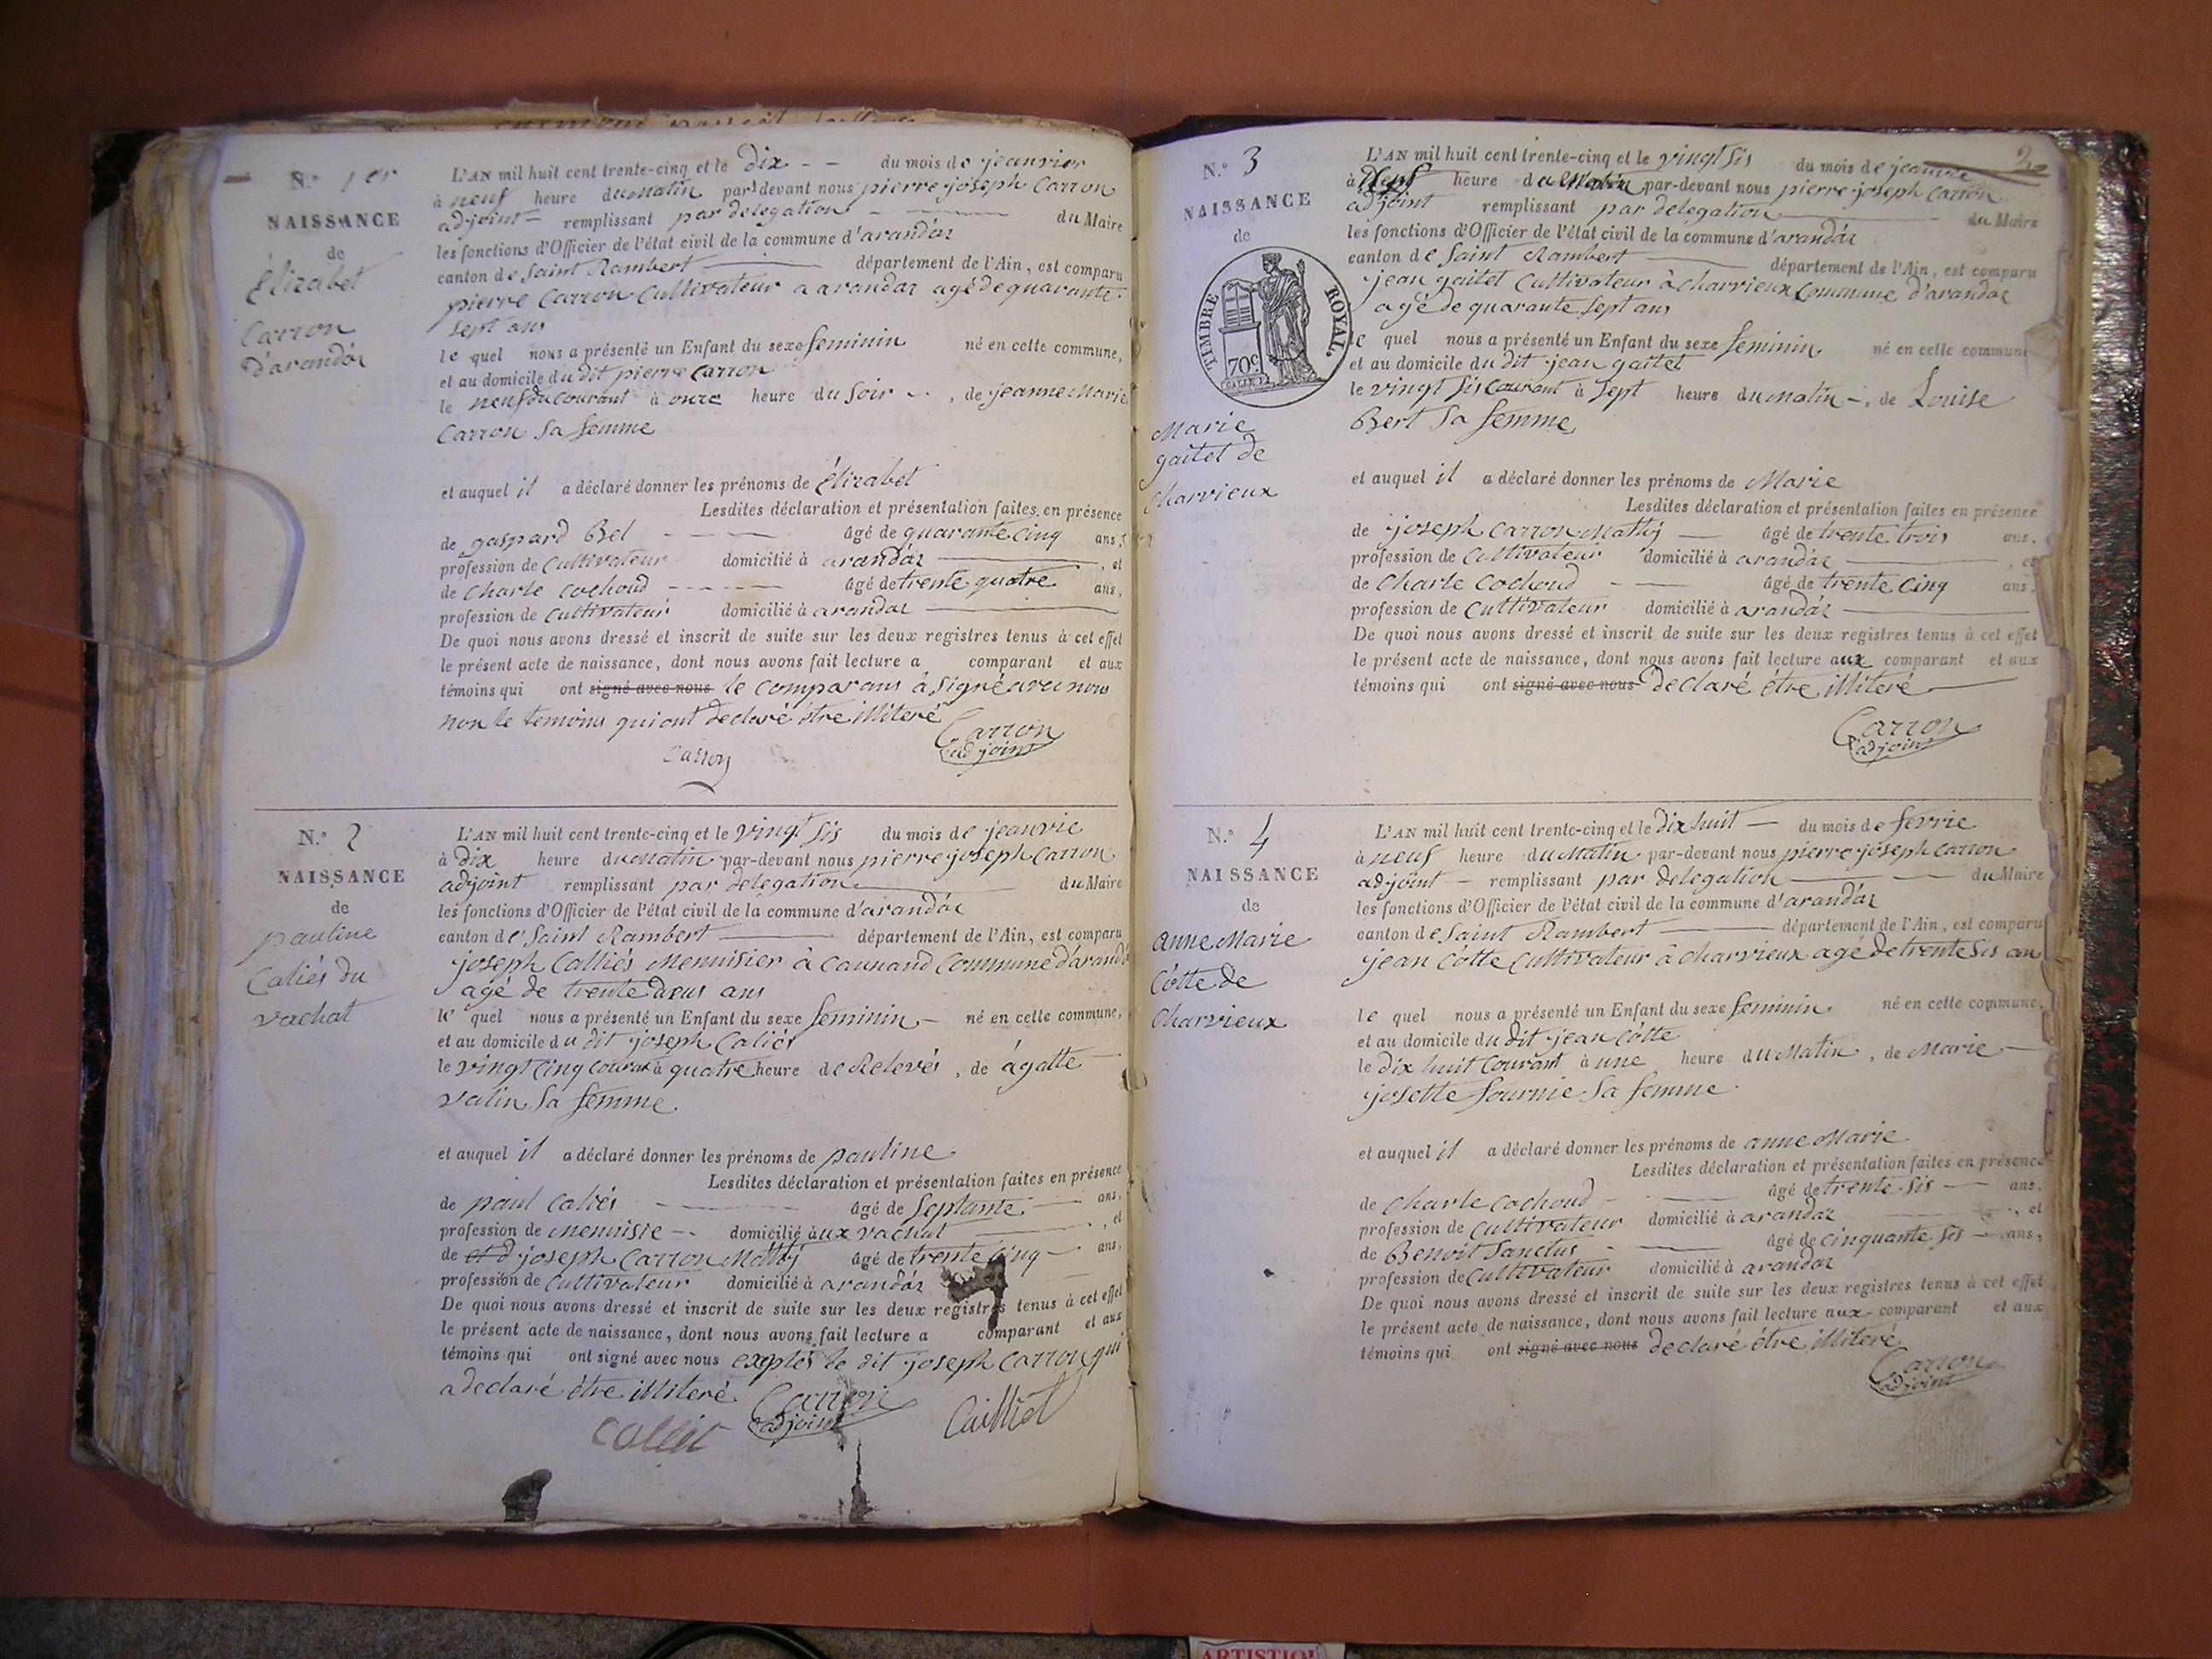 N.° 1er
NAISSANCE
de
Élizabet
Carron
d'arandáz
L'AN mil huit cent trente-cinq et le dix - - du mois de jeanvier
à neuf heure du Matin par-devant nous pierre joseph Carron
adjoint - remplissant par delegation - du Maire
les fonctions d'Officier de l'état civil de la commune d'arandáz
canton de Saint Rambert département de l'Ain, est comparu
pierre Carron Cultivateur a arandaz agé de quarante
sept ans
le quel nous a présenté un Enfant du sexe feminin né en cette commune,
et au domicile du dit pierre Carron
le neuf du Courant à onze heure du Soir - , de jeanne Marie
Carron Sa femme
et auquel il a déclaré donner les prénoms de Élizabet
Lesdites déclaration et présentation faites en présence
de gaspard Bel - - - âgé de quarante cinq ans,
profession de Cultivateur domicilié à arandáz , et
de Charle Cochoud - - - - âgé de trente quatre ans,
profession de Cultivateur domicilié à arandaz
De quoi nous avons dressé et inscrit de suite sur les deux registres tenus à cet effet
le présent acte de naissance, dont nous avons fait lecture a comparant et aux
témoins qui ont signé avec nous le Comparans à Signé avec nous
non le temoins qui ont declaré être illiteré
Carron
adjoint
Carron
N.° 2
NAISSANCE
de
pauline
Caliés du
vachat
L'AN mil huit cent trente-cinq et le vingt sis du mois de jeanvie
à dix heure du Matin par-devant nous pierre joseph Carron
adjoint remplissant par delegation du Maire
les fonctions d'Officier de l'état civil de la commune d'arandáz
canton de Saint Rambert département de l'Ain, est comparu
joseph Calliés Menuisier à Commune d'arandá
agé de trente deus ans
le quel nous a présenté un Enfant du sexe feminin - né en cette commune,
et au domicile du dit joseph Caliés
le vingt Cinq Courant à quatre heure de Relevés , de ágatte
valin Sa femme
et auquel il a déclaré donner les prénoms de pauline
Lesdites déclaration et présentation faites en présence
de paul Caliés âgé de Septante ans,
profession de Menuisie - domicilié à ux vachat , et
de joseph Carron Mathy âgé de trente Cinq - ans,
profession de Cultivateur domicilié à arandáz
De quoi nous avons dressé et inscrit de suite sur les deux registres tenus à cet effet
le présent acte de naissance, dont nous avons fait lecture a comparant et aux
témoins qui ont signé avec nous exeptés le dit joseph Carron qui
a declaré être illiteré
Carron
adjoint
N.° 3
NAISSANCE
de
TIMBRE ROYAL.
70c
Marie
gaitet de
Charvieux
2
L'AN mil huit cent trente-cinq et le vingt sis du mois de jeanvie
à heure du Matin par-devant nous pierre joseph Carron
adjoint remplissant par delegation du Maire
les fonctions d'Officier de l'état civil de la commune d'arandáz
canton de Saint Rambert département de l'Ain, est comparu
jean gaitet Cultivateur à Charvieux Commune d'arandáz
agé de quarante Sept ans
le quel nous a présenté un Enfant du sexe feminin né en cette commune
et au domicile du dit jean gaitet
le vingt sis Courant à Sept heure du Matin - , de Louise
Bert Sa femme
et auquel il a déclaré donner les prénoms de Marie
Lesdites déclaration et présentation faites en présence
de joseph Carron Mathy âgé de trente trois ans,
profession de Cultivateur domicilié à arandáz , et
de Charle Cochoud âgé de trente Cinq ans,
profession de Cultivateur domicilié à arandáz
De quoi nous avons dressé et inscrit de suite sur les deux registres tenus à cet effet
le présent acte de naissance, dont nous avons fait lecture aux comparant et aux
témoins qui ont signé avec nous declaré être illiteré
Carron
adjoint
N.° 4
NAISSANCE
de
anne Marie
Cótte de
Charvieux
L'AN mil huit cent trente-cinq et le dix huit - du mois de fevrie
à neuf heure du Matin par-devant nous pierre joseph Carron
adjoint - remplissant par delegation du Maire
les fonctions d'Officier de l'état civil de la commune d'arandáz
canton de Saint Rambert département de l'Ain, est comparu
jean Cótte Cultivateur à Charvieux agé de trente sis an
le quel nous a présenté un Enfant du sexe feminin né en cette commune,
et au domicile du dit jean Cótte
le dix huit Courant à une heure du Matin , de Marie
josette fournie Sa femme
et auquel il a déclaré donner les prénoms de anne Marie
Lesdites déclaration et présentation faites en présence
de Charle Cochoud âgé de trente sis ans,
profession de Cultivateur domicilié à arandáz , et
de Benoit Sanctus âgé de Cinquante sis ans,
profession de Cultivateur domicilié à arandaz
De quoi nous avons dressé et inscrit de suite sur les deux registres tenus à cet effet
le présent acte de naissance, dont nous avons fait lecture aux comparant et aux
témoins qui ont signé avec nous declaré être illiteré
Carron
adjoint